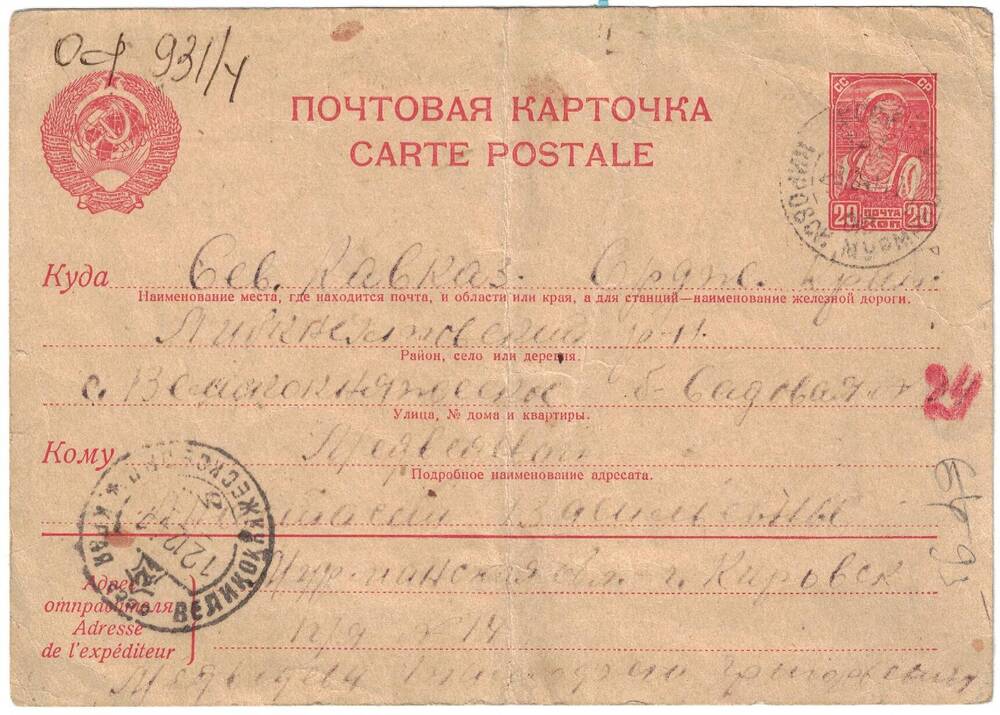 Оф 931/4
ПОЧТОВАЯ КАРТОЧКА
CARTE POSTALE
СС СР
20 ПОЧТА КОП 20
Куда Сев. Кавказ. Ордж. край.
Наименование места, где находится почта, и области или края, а для станций—наименование железной дороги.
Либкнехтовский р-н.
Район, село или деревня.
с. Великокняжеское Б-Садовая № 24
Улица, № дома и квартиры.
Кому Медведевой
Подробное наименование адресата.
Васильевны
ВЕЛИКОКНЯЖЕСКОЕ
Адрес отправителя
Adresse de l'expéditeur
Мурманская обл. г. Кировск
п/я № 14
Медведев Григорьевич